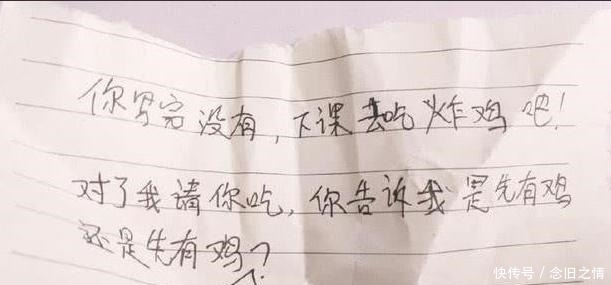 你写完没有，下课去吃炸鸡吧！
对了我请你吃，你告诉我是先有鸡
还是先有鸡？
快传号 / 念旧之情